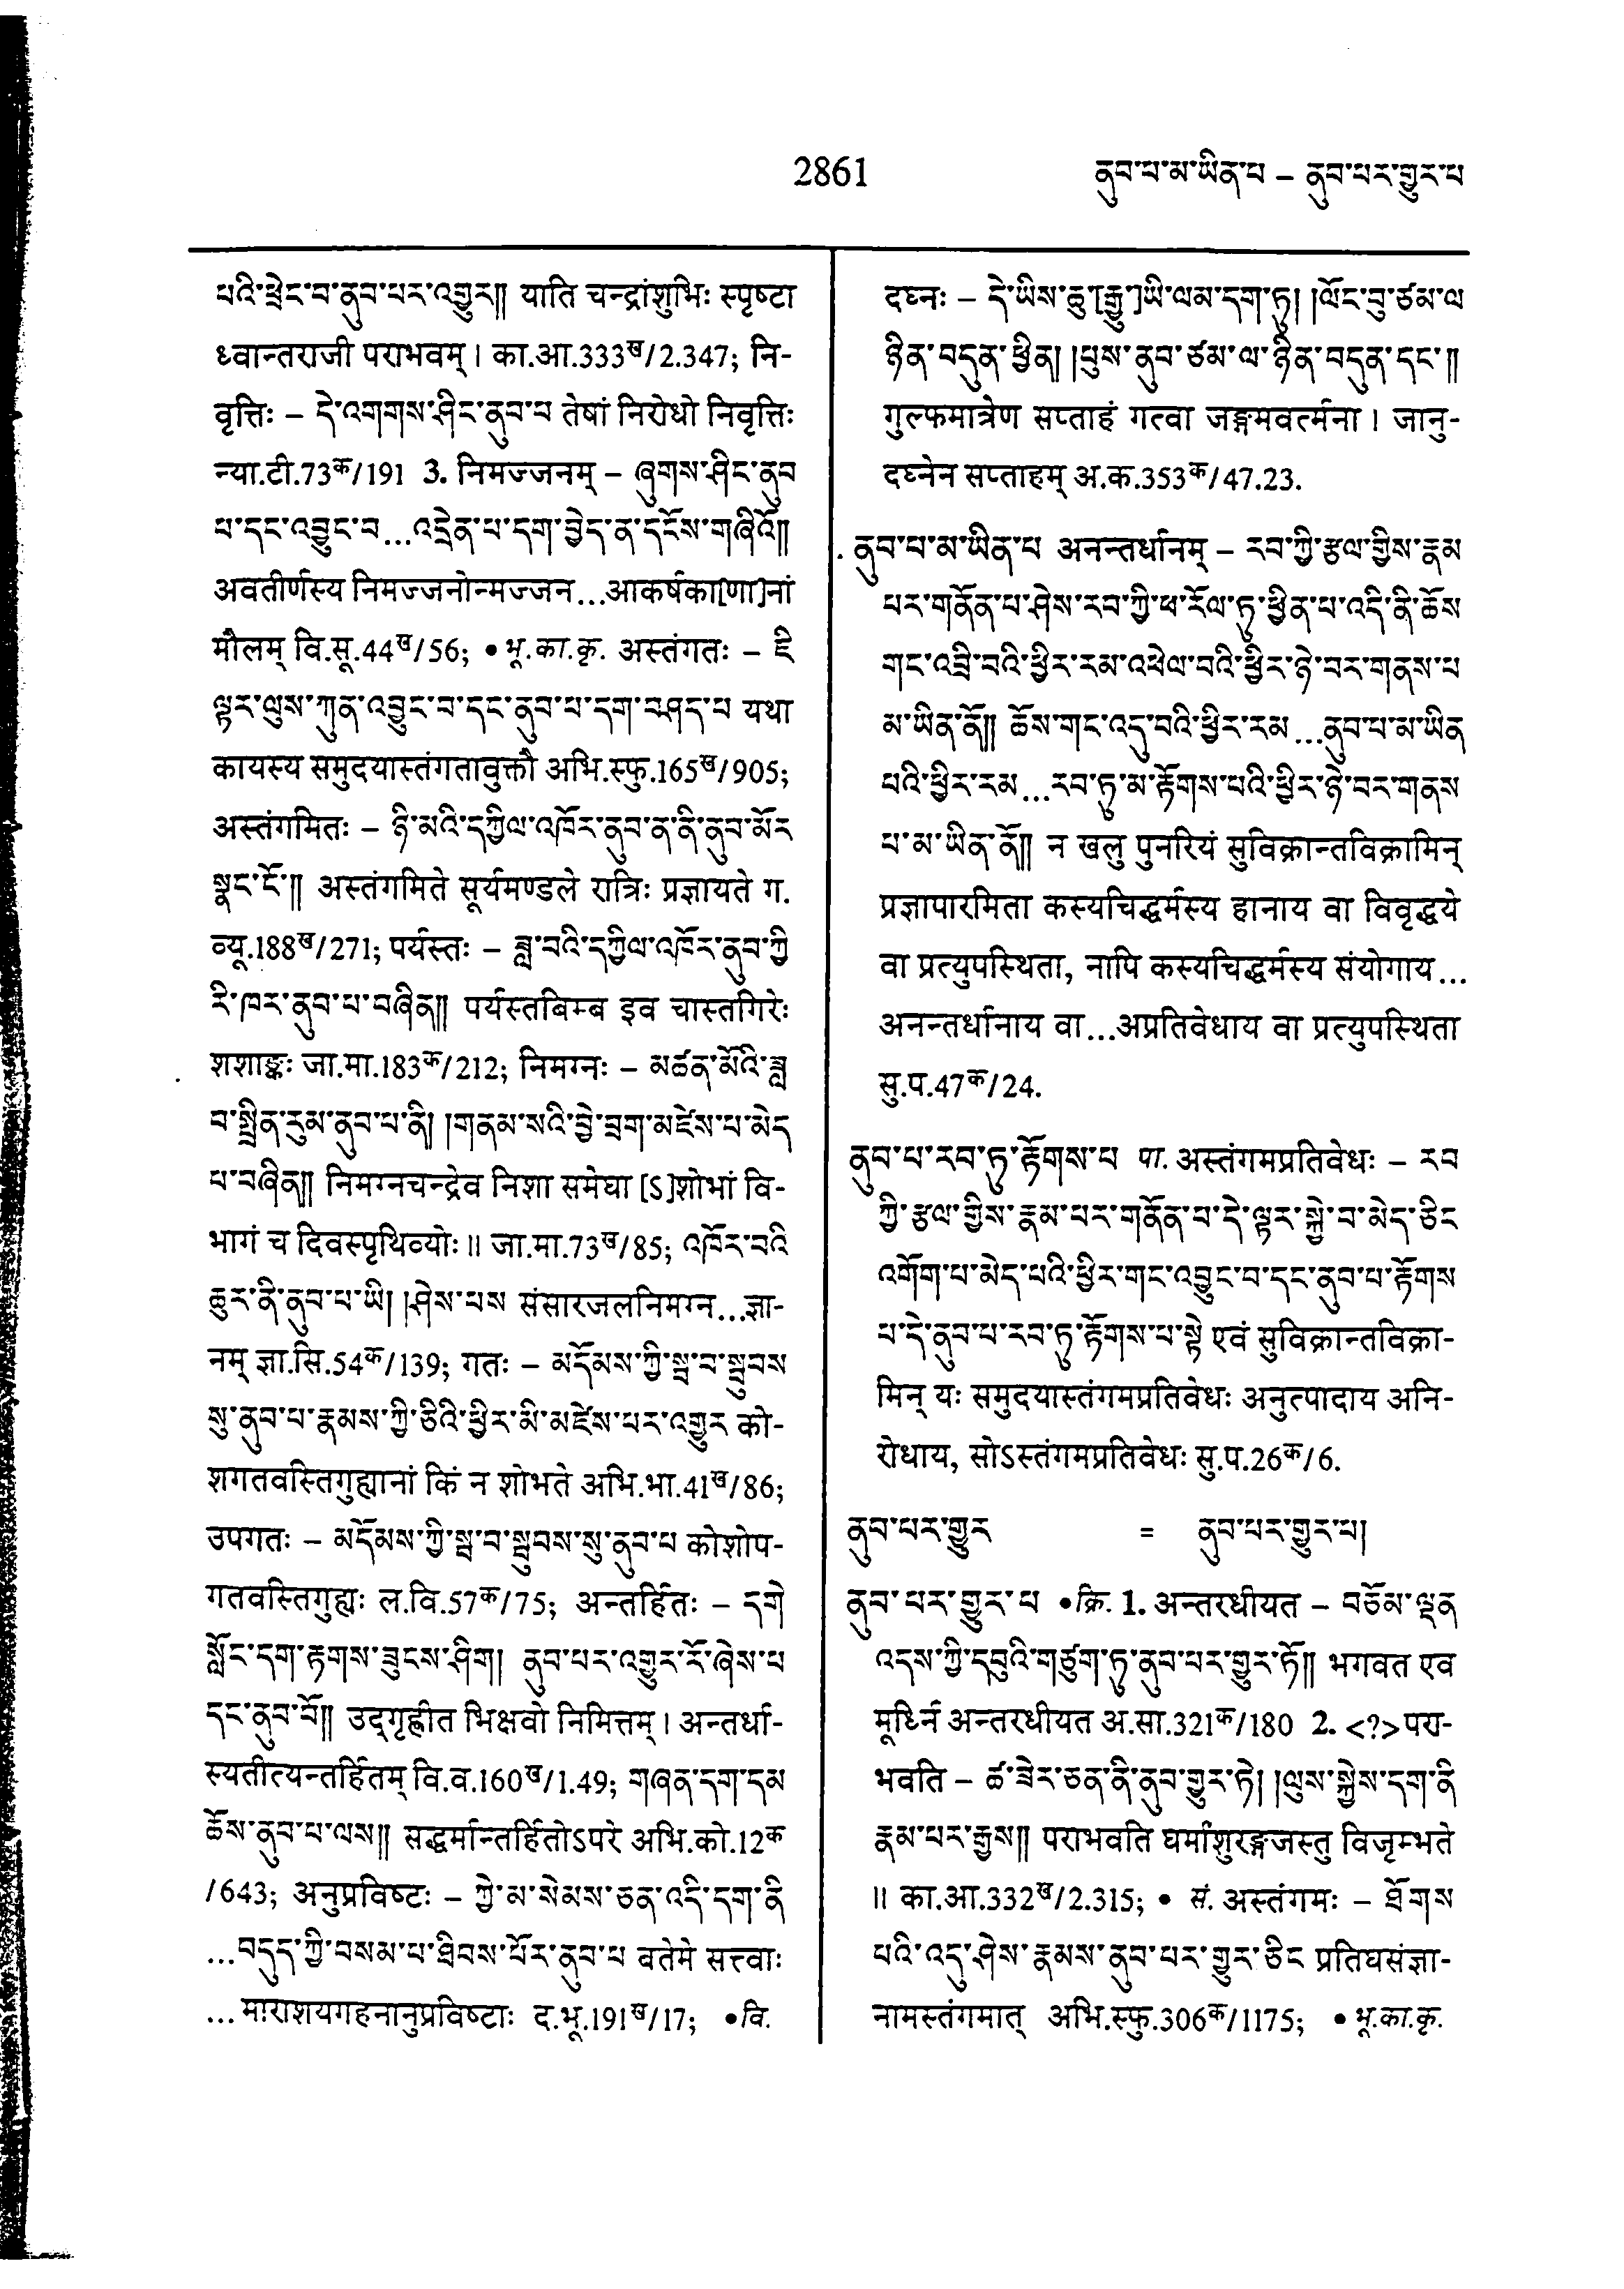 2861
ནུབ་པ་མ་ཡིན་པ – ནུབ་པར་གྱུར་པ
པའི་ཕྲེང་བ་ནུབ་པར་འགྱུར༎ याति चन्द्रांशुभिः स्पृष्टा
ध्वान्तराजी पराभवम् । का.आ.333ख/2.347; नि-
वृत्तिः – དེ་འགགས་ཤིང་ནུབ་པ तेषां निरोधो निवृत्तिः
न्या.टी.73क/191 3. निमज्जनम् – ཞུགས་ཤིང་ནུབ
པ་དང་འབྱུང་བ...འདྲེན་པ་དག་བྱེད་ན་དངོས་གཞིའོ༎
अवतीर्णस्य निमज्जनोन्मज्जन...आकर्षका[णा]नां
मौलम् वि.सू.44ख/56; • भू.का.कृ. अस्तंगतः – ཇི
ལྟར་ལུས་ཀུན་འབྱུང་བ་དང་ནུབ་པ་དག་བཤད་པ यथा
कायस्य समुदयास्तंगतावुक्तौ अभि.स्फु.165ख/905;
अस्तंगमितः – ཉི་མའི་དཀྱིལ་འཁོར་ནུབ་ན་ནི་ནུབ་མོར
སྣང་ངོ་༎ अस्तंगमिते सूर्यमण्डले रात्रिः प्रज्ञायते ग.
व्यू.188ख/271; पर्यस्तः – ཟླ་བའི་དཀྱིལ་འཁོར་ནུབ་ཀྱི
རི་ཁར་ནུབ་པ་བཞིན༎ पर्यस्तबिम्ब इव चास्तगिरेः
शशाङ्कः जा.मा.183क/212; निमग्नः – མཚན་མོའི་ཟླ
བ་སྤྲིན་རུམ་ནུབ་པ་ནི། །གནམ་སའི་བྱེ་བྲག་མཛེས་པ་མེད
པ་བཞིན༎ निमग्नचन्द्रेव निशा समेघा [ऽ]शोभां वि-
भागं च दिवस्पृथिव्योः ॥ जा.मा.73ख/85; འཁོར་བའི
ཆུར་ནི་ནུབ་པ་ཡི། །ཤེས་པས संसारजलनिमग्न...ज्ञा-
नम् ज्ञा.सि.54क/139; गतः – མདོམས་ཀྱི་སྦ་བ་སྦུབས
སུ་ནུབ་པ་རྣམས་ཀྱི་ཅིའི་ཕྱིར་མི་མཛེས་པར་འགྱུར को-
शगतवस्तिगुह्यानां किं न शोभते अभि.भा.41ख/86;
उपगतः – མདོམས་ཀྱི་སྦ་བ་སྦུབས་སུ་ནུབ་པ कोशोप-
गतवस्तिगुह्यः ल.वि.57क/75; अन्तर्हितः – དགེ
སློང་དག་རྟགས་ཟུངས་ཤིག། ནུབ་པར་འགྱུར་རོ་ཞེས་པ
དང་ནུབ་བོ༎ उद्गृह्णीत भिक्षवो निमित्तम् । अन्तर्धा-
स्यतीत्यन्तर्हितम् वि.व.160ख/1.49; གཞན་དག་དམ
ཆོས་ནུབ་པ་ལས༎ सद्धर्मान्तर्हितोऽपरे अभि.को.12क
/643; अनुप्रविष्टः – ཀྱེ་མ་སེམས་ཅན་འདི་དག་ནི
...བདུད་ཀྱི་བསམ་པ་ཐིབས་པོར་ནུབ་པ वतेमे सत्त्वाः
...माराशयगहनानुप्रविष्टाः द.भू.191ख/17; •वि.
दघ्नः – དེ་ཡིས་ཆུ་[རྒྱུ་]ཡི་ལམ་དག་ཏུ། །ལོང་བུ་ཙམ་ལ
ཉིན་བདུན་ཕྱིན། །པུས་ནུབ་ཙམ་ལ་ཉིན་བདུན་དང་༎
गुल्फमात्रेण सप्ताहं गत्वा जङ्गमवर्त्मना । जानु-
दघ्नेन सप्ताहम् अ.क.353क/47.23.
ནུབ་པ་མ་ཡིན་པ अनन्तर्धानम् – རབ་ཀྱི་རྩལ་གྱིས་རྣམ
པར་གནོན་པ་ཤེས་རབ་ཀྱི་ཕ་རོལ་ཏུ་ཕྱིན་པ་འདི་ནི་ཆོས
གང་འབྲི་བའི་ཕྱིར་རམ་འཕེལ་བའི་ཕྱིར་ཉེ་བར་གནས་པ
མ་ཡིན་ནོ༎ ཆོས་གང་འདུ་བའི་ཕྱིར་རམ...ནུབ་པ་མ་ཡིན
པའི་ཕྱིར་རམ...རབ་ཏུ་མ་རྟོགས་པའི་ཕྱིར་ཉེ་བར་གནས
པ་མ་ཡིན་ནོ༎ न खलु पुनरियं सुविक्रान्तविक्रामिन्
प्रज्ञापारमिता कस्यचिद्धर्मस्य हानाय वा विवृद्धये
वा प्रत्युपस्थिता, नापि कस्यचिद्धर्मस्य संयोगाय...
अनन्तर्धानाय वा...अप्रतिवेधाय वा प्रत्युपस्थिता
सु.प.47क/24.
ནུབ་པ་རབ་ཏུ་རྟོགས་པ पा. अस्तंगमप्रतिवेधः – རབ
ཀྱི་རྩལ་གྱིས་རྣམ་པར་གནོན་པ་དེ་ལྟར་སྐྱེ་བ་མེད་ཅིང
འགོག་པ་མེད་པའི་ཕྱིར་གང་འབྱུང་བ་དང་ནུབ་པ་རྟོགས
པ་དེ་ནུབ་པ་རབ་ཏུ་རྟོགས་པ་སྟེ एवं सुविक्रान्तविक्रा-
मिन् यः समुदयास्तंगमप्रतिवेधः अनुत्पादाय अनि-
रोधाय, सोऽस्तंगमप्रतिवेधः सु.प.26क/6.
ནུབ་པར་གྱུར = ནུབ་པར་གྱུར་པ།
ནུབ་པར་གྱུར་པ •क्रि. 1. अन्तरधीयत – བཅོམ་ལྡན
འདས་ཀྱི་དབུའི་གཙུག་ཏུ་ནུབ་པར་གྱུར་ཏོ༎ भगवत एव
मूर्ध्नि अन्तरधीयत अ.सा.321क/180 2. <?> परा-
भवति – ཚ་ཟེར་ཅན་ནི་ནུབ་གྱུར་ཏེ། །ལུས་སྐྱེས་དག་ནི
རྣམ་པར་རྒྱས༎ पराभवति घर्मांशुरङ्गजस्तु विजृम्भते
॥ का.आ.332ख/2.315; • सं. अस्तंगमः – ཐོགས
པའི་འདུ་ཤེས་རྣམས་ནུབ་པར་གྱུར་ཅིང प्रतिघसंज्ञा-
नामस्तंगमात् अभि.स्फु.306क/1175; • भू.का.कृ.